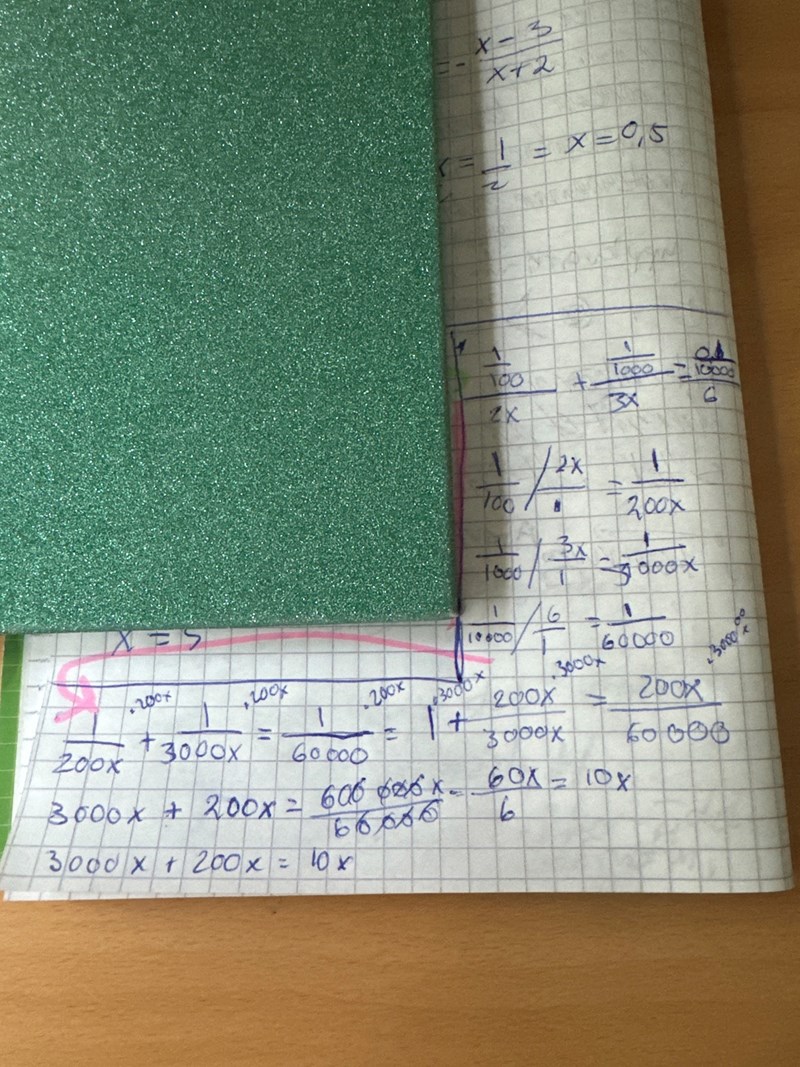 = - (x-3)/(x+2)
x = 1/2 = x = 0,5
(1/100)/(2x) + (1/1000)/(3x) = (1/10000)/6
1/100 / 2x/1 = 1/200x
1/1000 / 3x/1 = 1/3000x
1/10000 / 6/1 = 1/60000
x = 5
1/200x ·200x + 1/3000x ·200x = 1/60000 ·200x = 1 ·3000x + 200x/3000x ·3000x = 200x/60000 ·3000x
3000x + 200x = 600 000x/60000 = 60x/6 = 10x
3000x + 200x = 10x